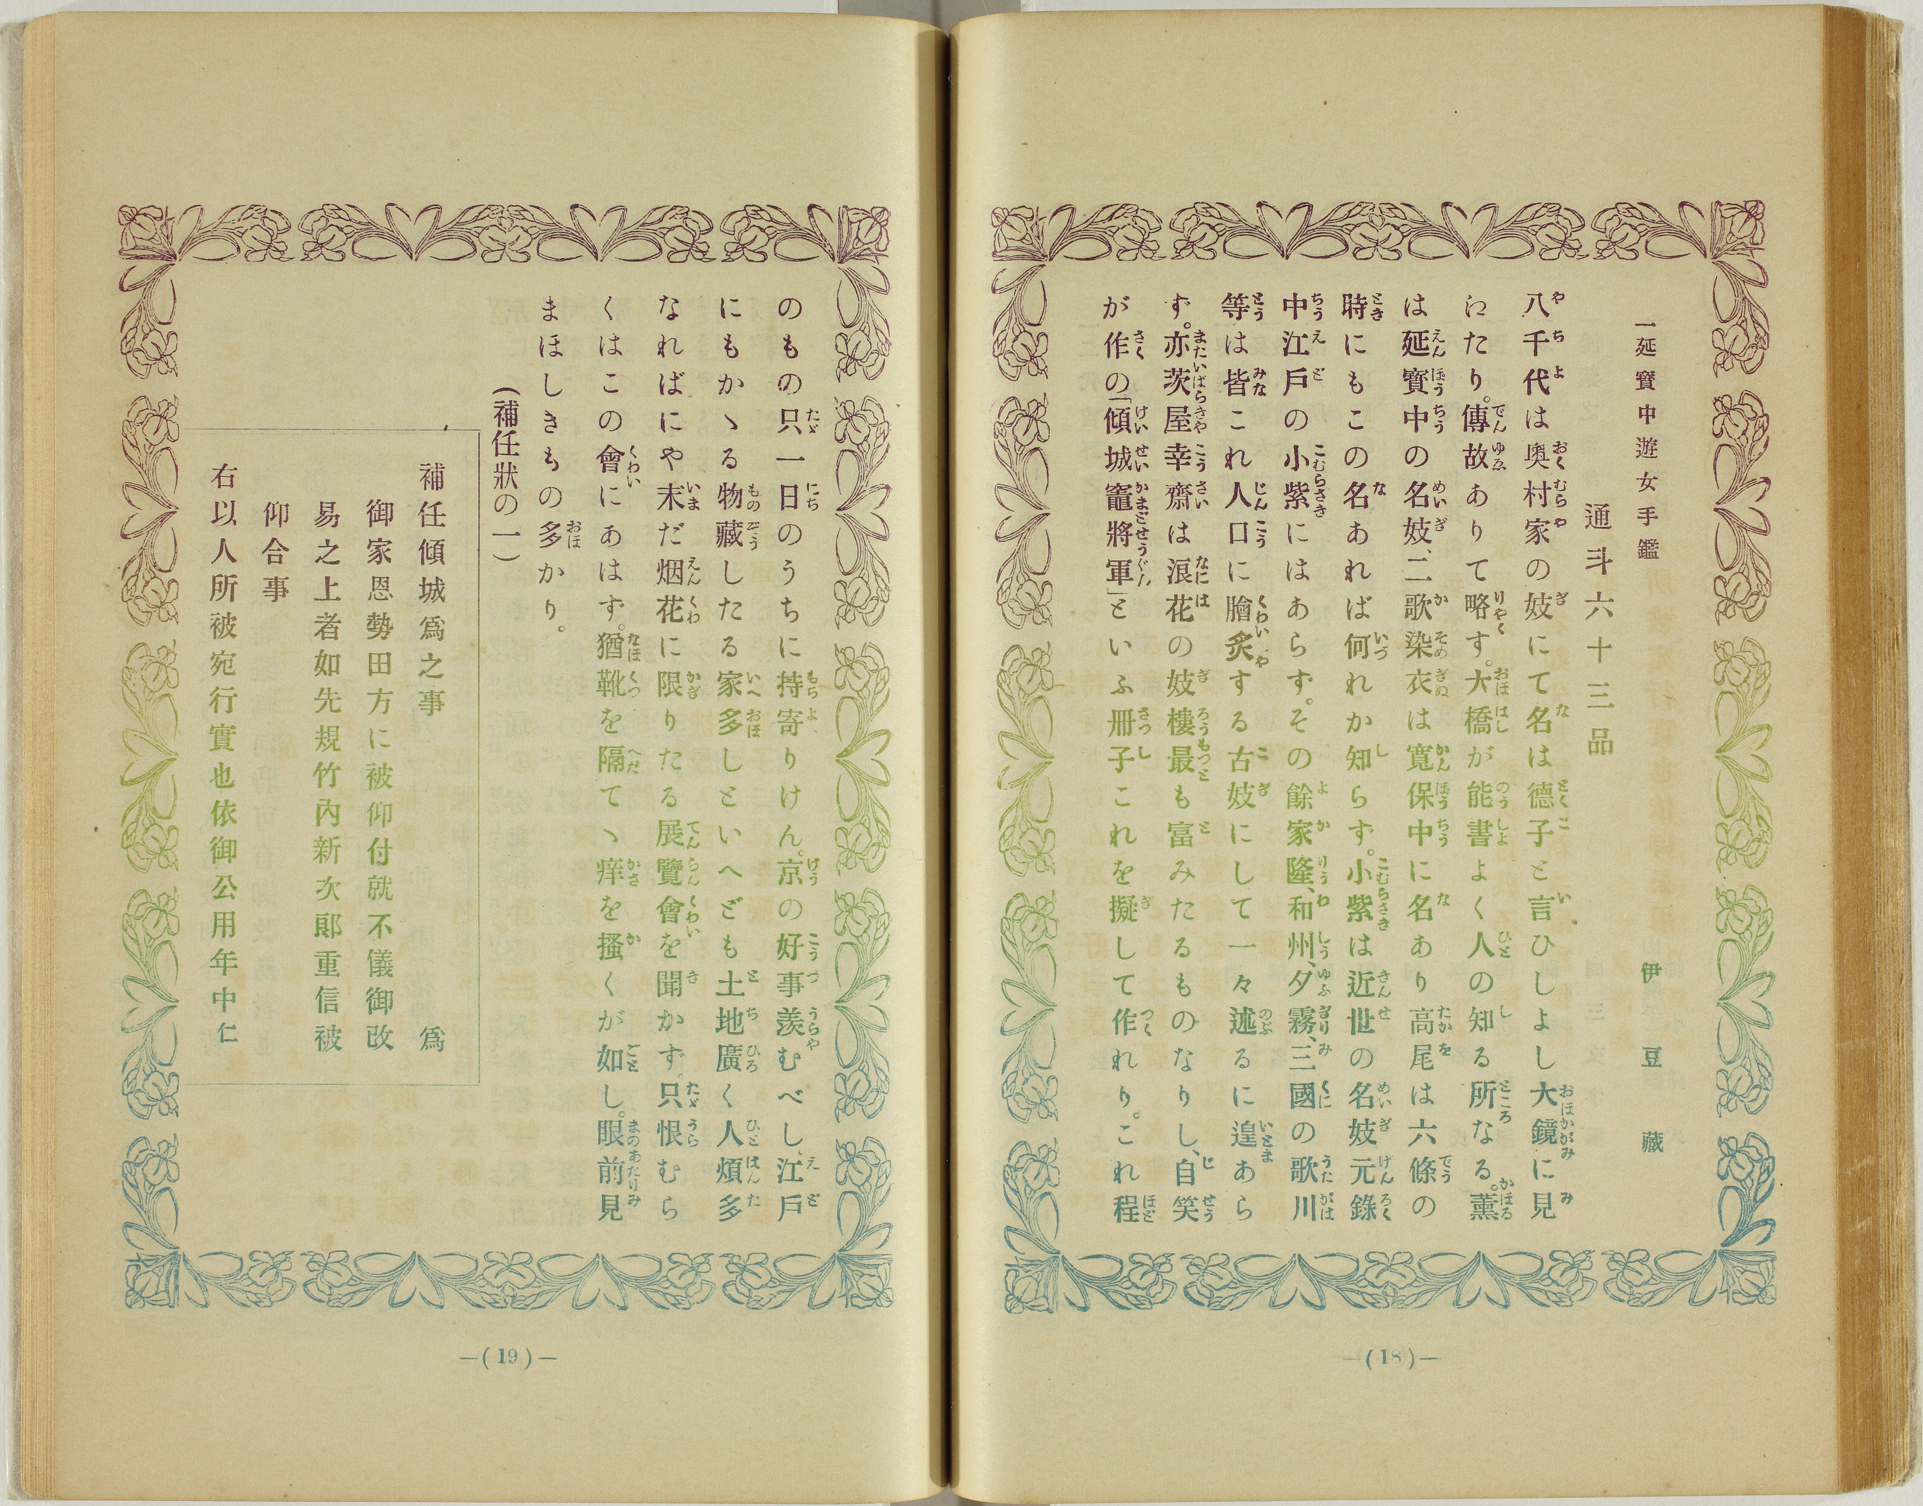 一延寳中遊女手鑑　伊豆藏
通斗六十三品
八千代は奧村家の妓にて名は德子と言ひしよし大鏡に見
わたり。傳故ありて略す。大橋が能書よく人の知る所なる。薫
は延寳中の名妓、二歌染衣は寬保中に名あり高尾は六條の
時にもこの名あれば何れか知らず。小紫は近世の名妓元錄
中江戶の小紫にはあらず。その餘家隆、和州、夕霧、三國の歌川
等は皆これ人口に膾炙する古妓にして一々述るに遑あら
ず。亦茨屋幸齋は浪花の妓樓最も富みたるものなりし、自笑
が作の「傾城竈將軍」といふ冊子これを擬して作れり。これ程
—(18)—
のもの只一日のうちに持寄りけん。京の好事羨むべし、江戶
にもかゝる物藏したる家多しといへども土地廣く人煩多
なればにや末だ烟花に限りたる展覽會を聞かず。只恨むら
くはこの會にあはず。猶靴を隔てゝ痒を搔くが如し。眼前見
まほしきものの多かり。
(補任狀の一)
補任傾城爲之事　爲
御家恩勢田方に被仰付就不儀御改
易之上者如先規竹內新次郞重信被
仰合事
右以人所被宛行實也依御公用年中仁
—(19)—